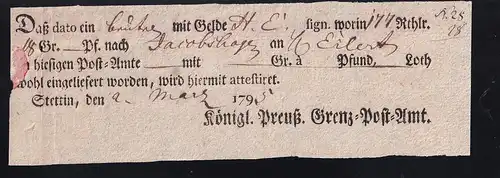 Daß dato ein Beutel mit Gelde H. E. sign. worin 177 Rthlr.
18 Gr. Pf. nach Jacobshagen an C Eilert
hiesigen Post-Amte mit Gr. à Pfund, Loth
wohl eingeliefert worden, wird hiermit attestiret.
Stettin, den 2. Martz 1795
Königl. Preuß. Grenz-Post-Amt.